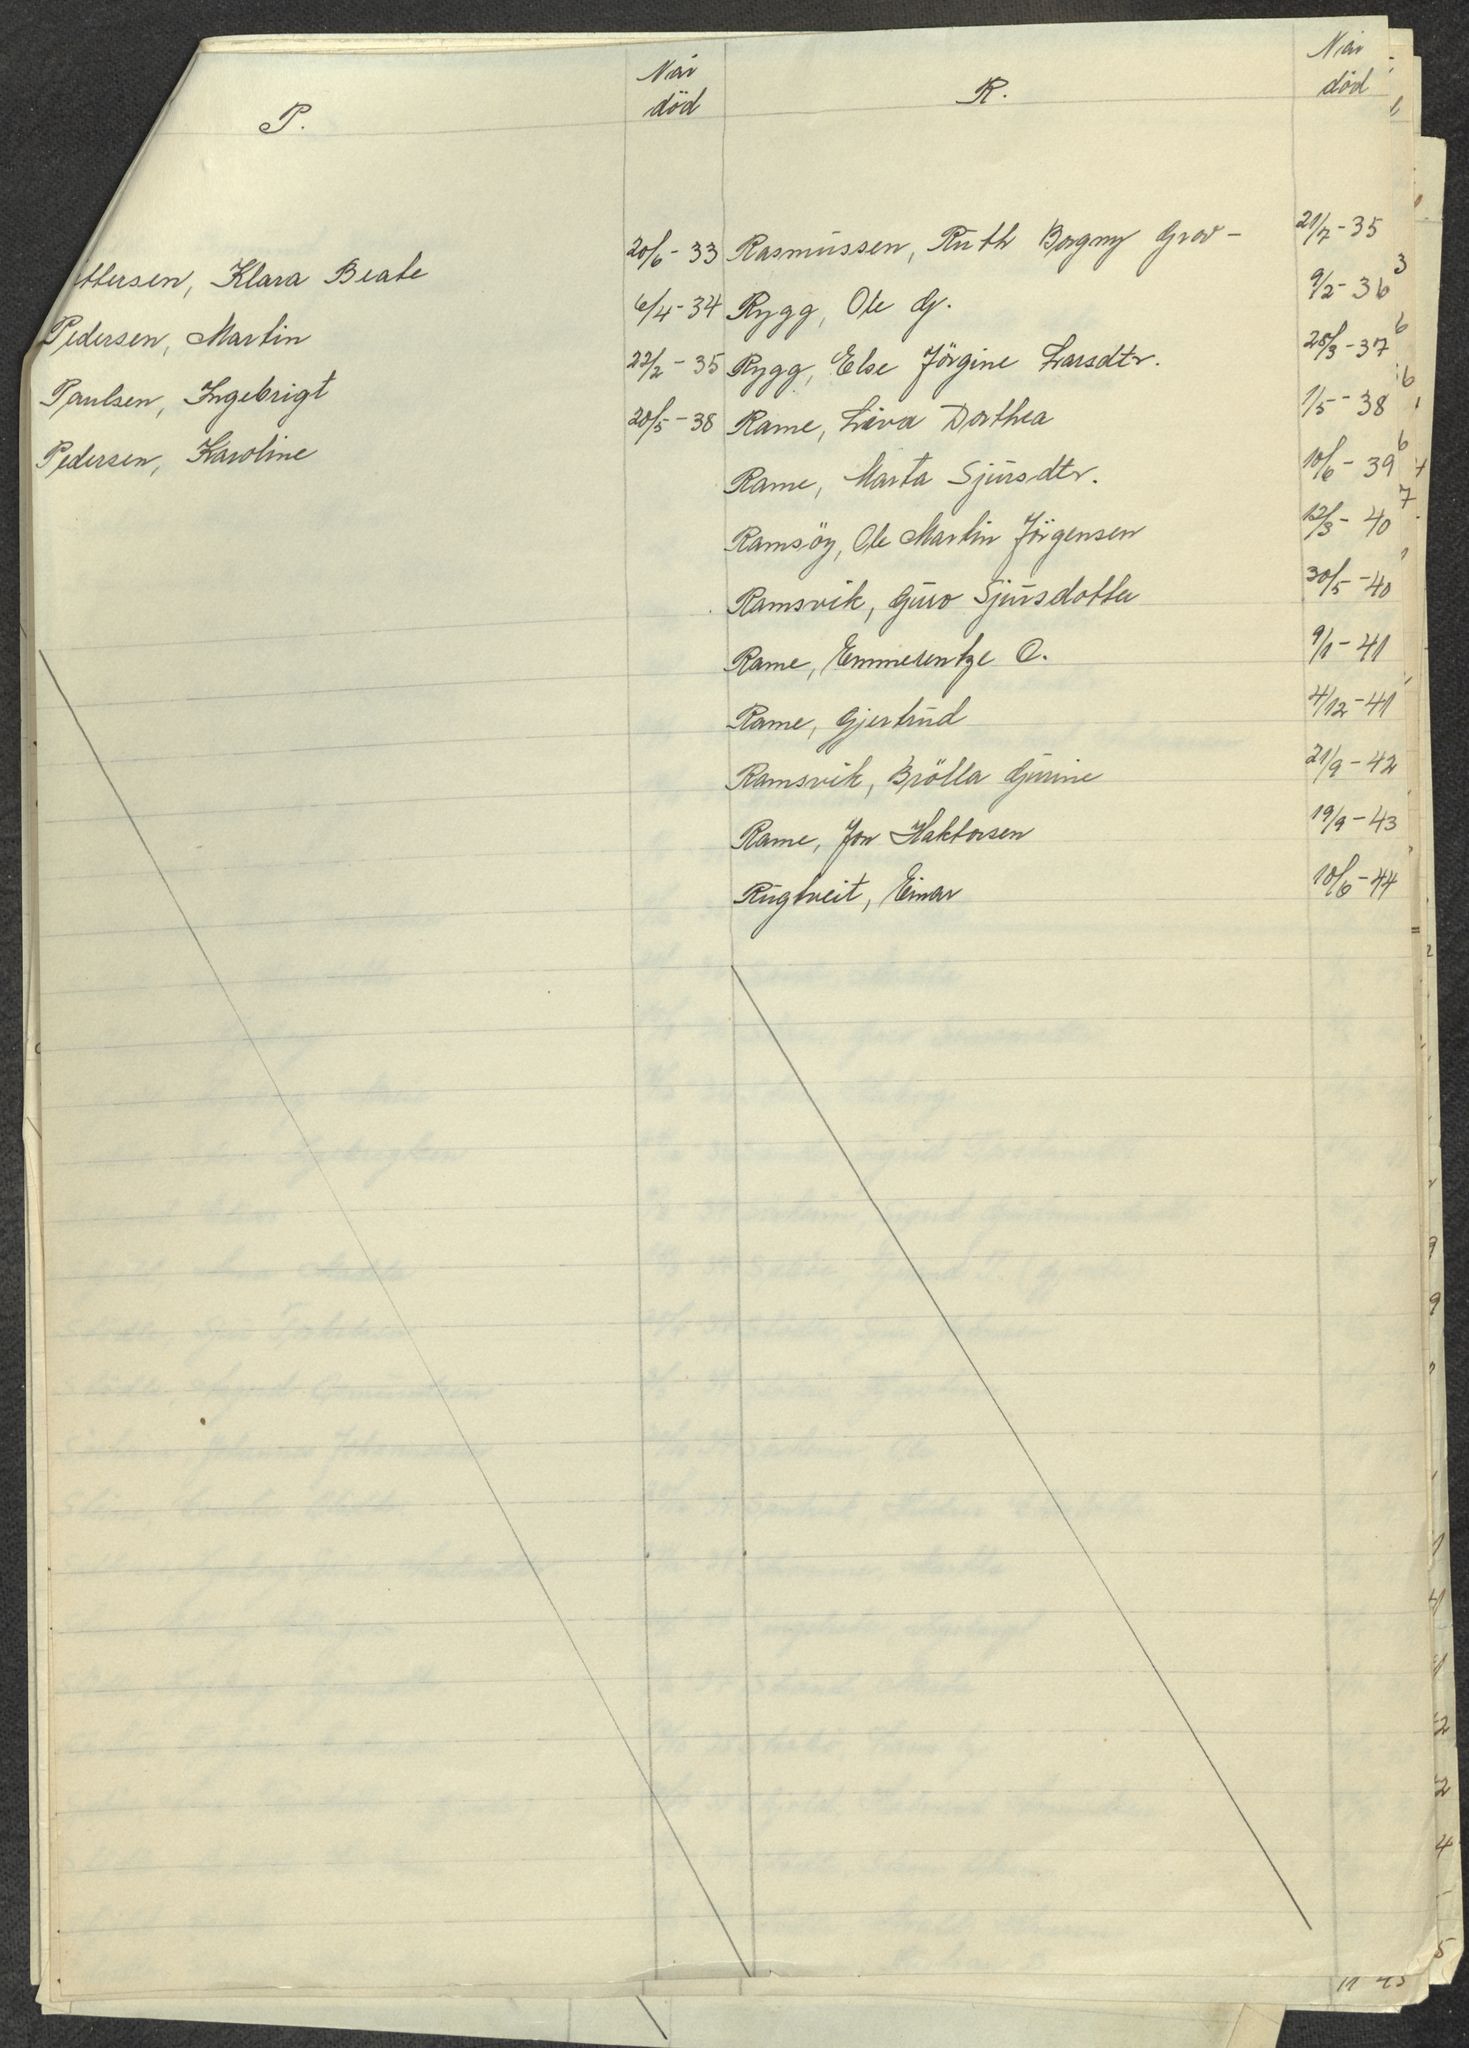 P.
Når
död
ttersen, Klara Beate 20/6-33
Pedersen, Martin 6/4-34
Paulsen, Ingebrigt 22/2-35
Pedersen, Karoline 20/5-38
R.
Når
död
Rasmussen, Ruth Borgny Grov- 21/7-35
Rygg, Ole G. 9/2-36
Rygg, Else Jörgine Larsdtr. 28/3-37
Rame, Liva Dorthea 1/5-38
Rame, Marta Sjursdtr. 10/6-39
Ramsöy, Ole Martin Jörgensen 12/3-40
Ramsvik, Guro Sjursdotter 30/5-40
Rame, Emmerentze O. 9/1-41
Rame, Gjertrud 4/12-41
Ramsvik, Brölla Gurine 21/9-42
Rame, Jon Haktorsen 19/9-43
Rugtveit, Einar 10/6-44